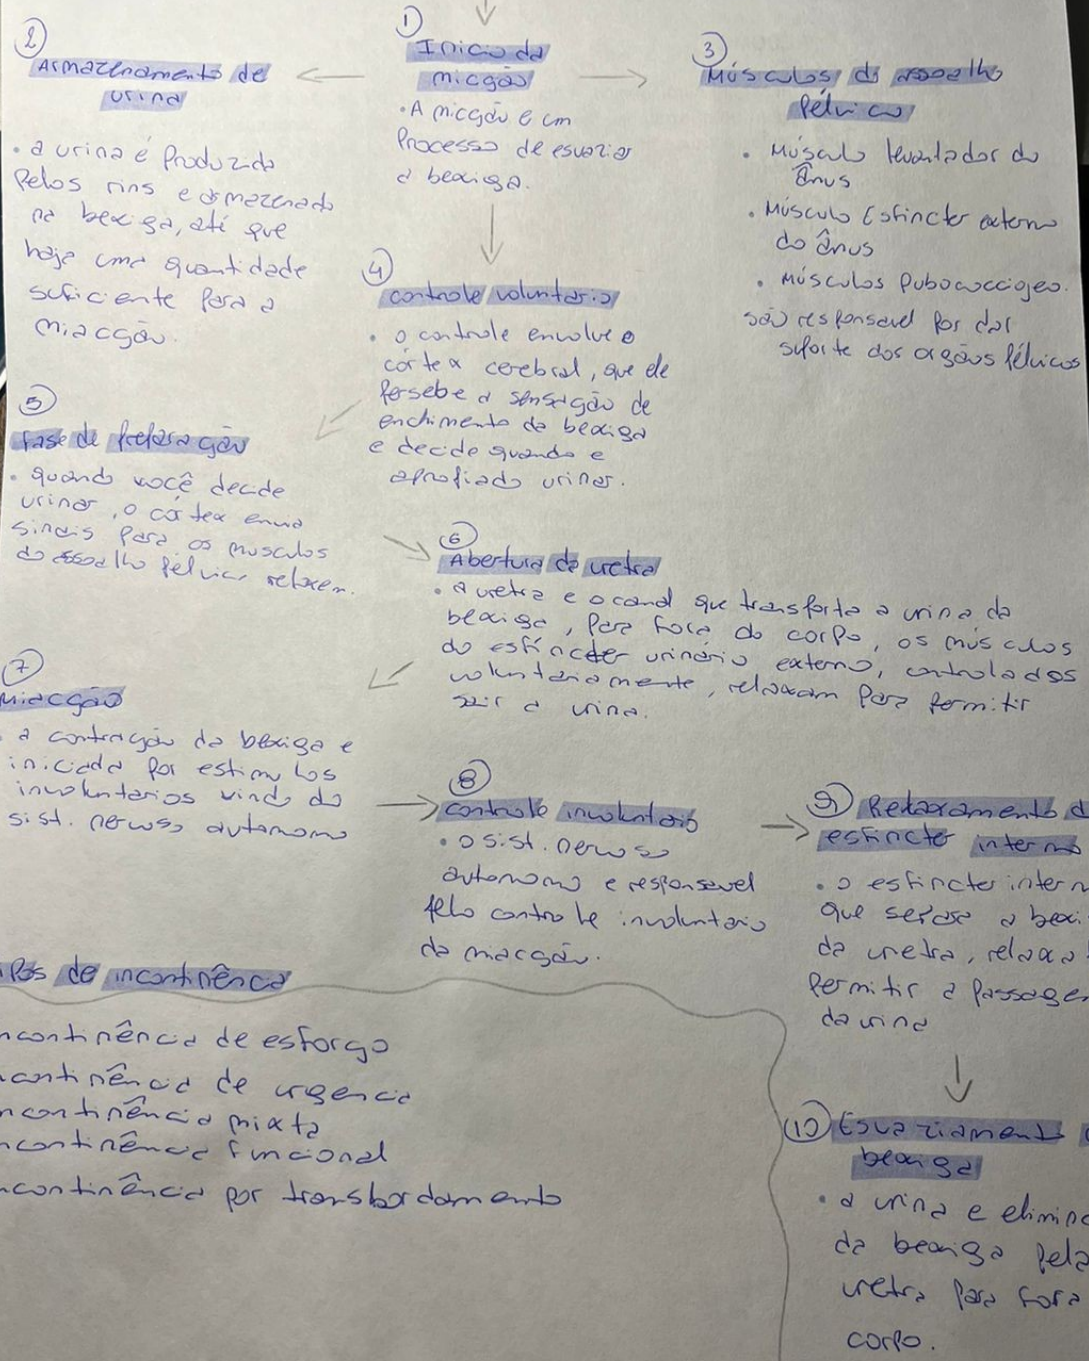 1
Inicio da
micção
• A micção e um
Processo de esvaziar
a bexiga.
2
Armazenamento de
urina
• a urina é Produzida
Pelos rins e armazenada
na bexiga, até que
haja uma quantidade
suficiente Para a
miacção.
3
Músculos do assoalho
Pélvico
• Músculo levantador do
ânus
• Músculo Esfincter externo
do ânus
• Músculos Pubococcigeo.
são responsavel Por dar
suporte dos orgãos Pélvicos
4
controle voluntario
• o controle envolve o
córtex cerebral, que ele
Persebe a sensação de
enchimento da bexiga
e decide quando e
urinar.
5
Fase de Preparação
• quando você decide
urinar, o cortex envia
sinais Para os musculos
do assoalho Pélvico relaxem.
6
Abertura da uretra
• a uretra e o canal que transporta a urina da
bexiga, Para fora do corpo, os músculos
do esfíncter urinário externo, controlados
voluntariamente, relaxam Para Permitir
sair a urina.
7
Miacção
a contração da bexiga e
iniciada Por estimulos
involuntarios vindo do
sist. nervoso autonomo
8
controle involuntario
• o sist. nervoso
autonomo e responsavel
Pelo controle involuntario
da miacção.
9 Relaxamento d
esfincter interno
• o esfincter intern
que separa a bexi
da uretra, relaxa
Permitir a Passage
da urina
10 Esvaziamento
bexiga
• a urina e elimina
da bexiga Pela
uretra Para fora
corpo.
ipos de incontinência
ncontinência de esforço
ncontinência de urgencia
ncontinência mixta
ncontinência funcional
ncontinência por transbordamento